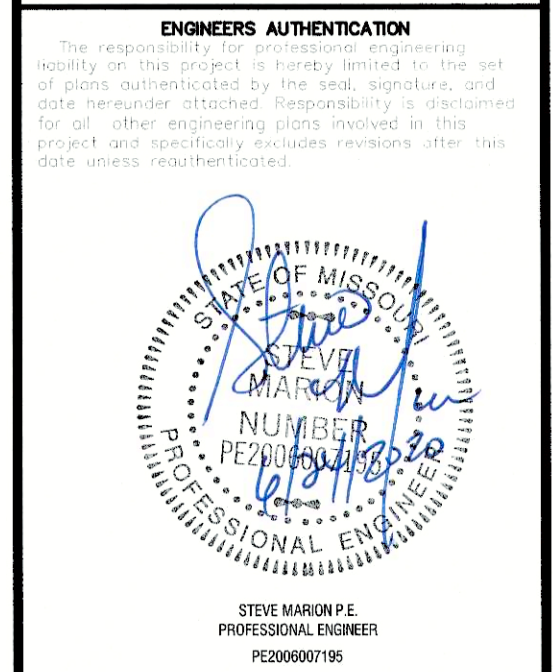 ENGINEERS AUTHENTICATION
The responsibility for professional engineering
liability on this project is hereby limited to the set
of plans authenticated by the seal, signature, and
date hereunder attached. Responsibility is disclaimed
for all other engineering plans involved in this
project and specifically excludes revisions after this
date unless reauthenticated.
STATE OF MISSOURI
Steve
STEVE
MARION
NUMBER
PE2006007195
PROFESSIONAL ENGINEER
STEVE MARION P.E.
PROFESSIONAL ENGINEER
PE2006007195